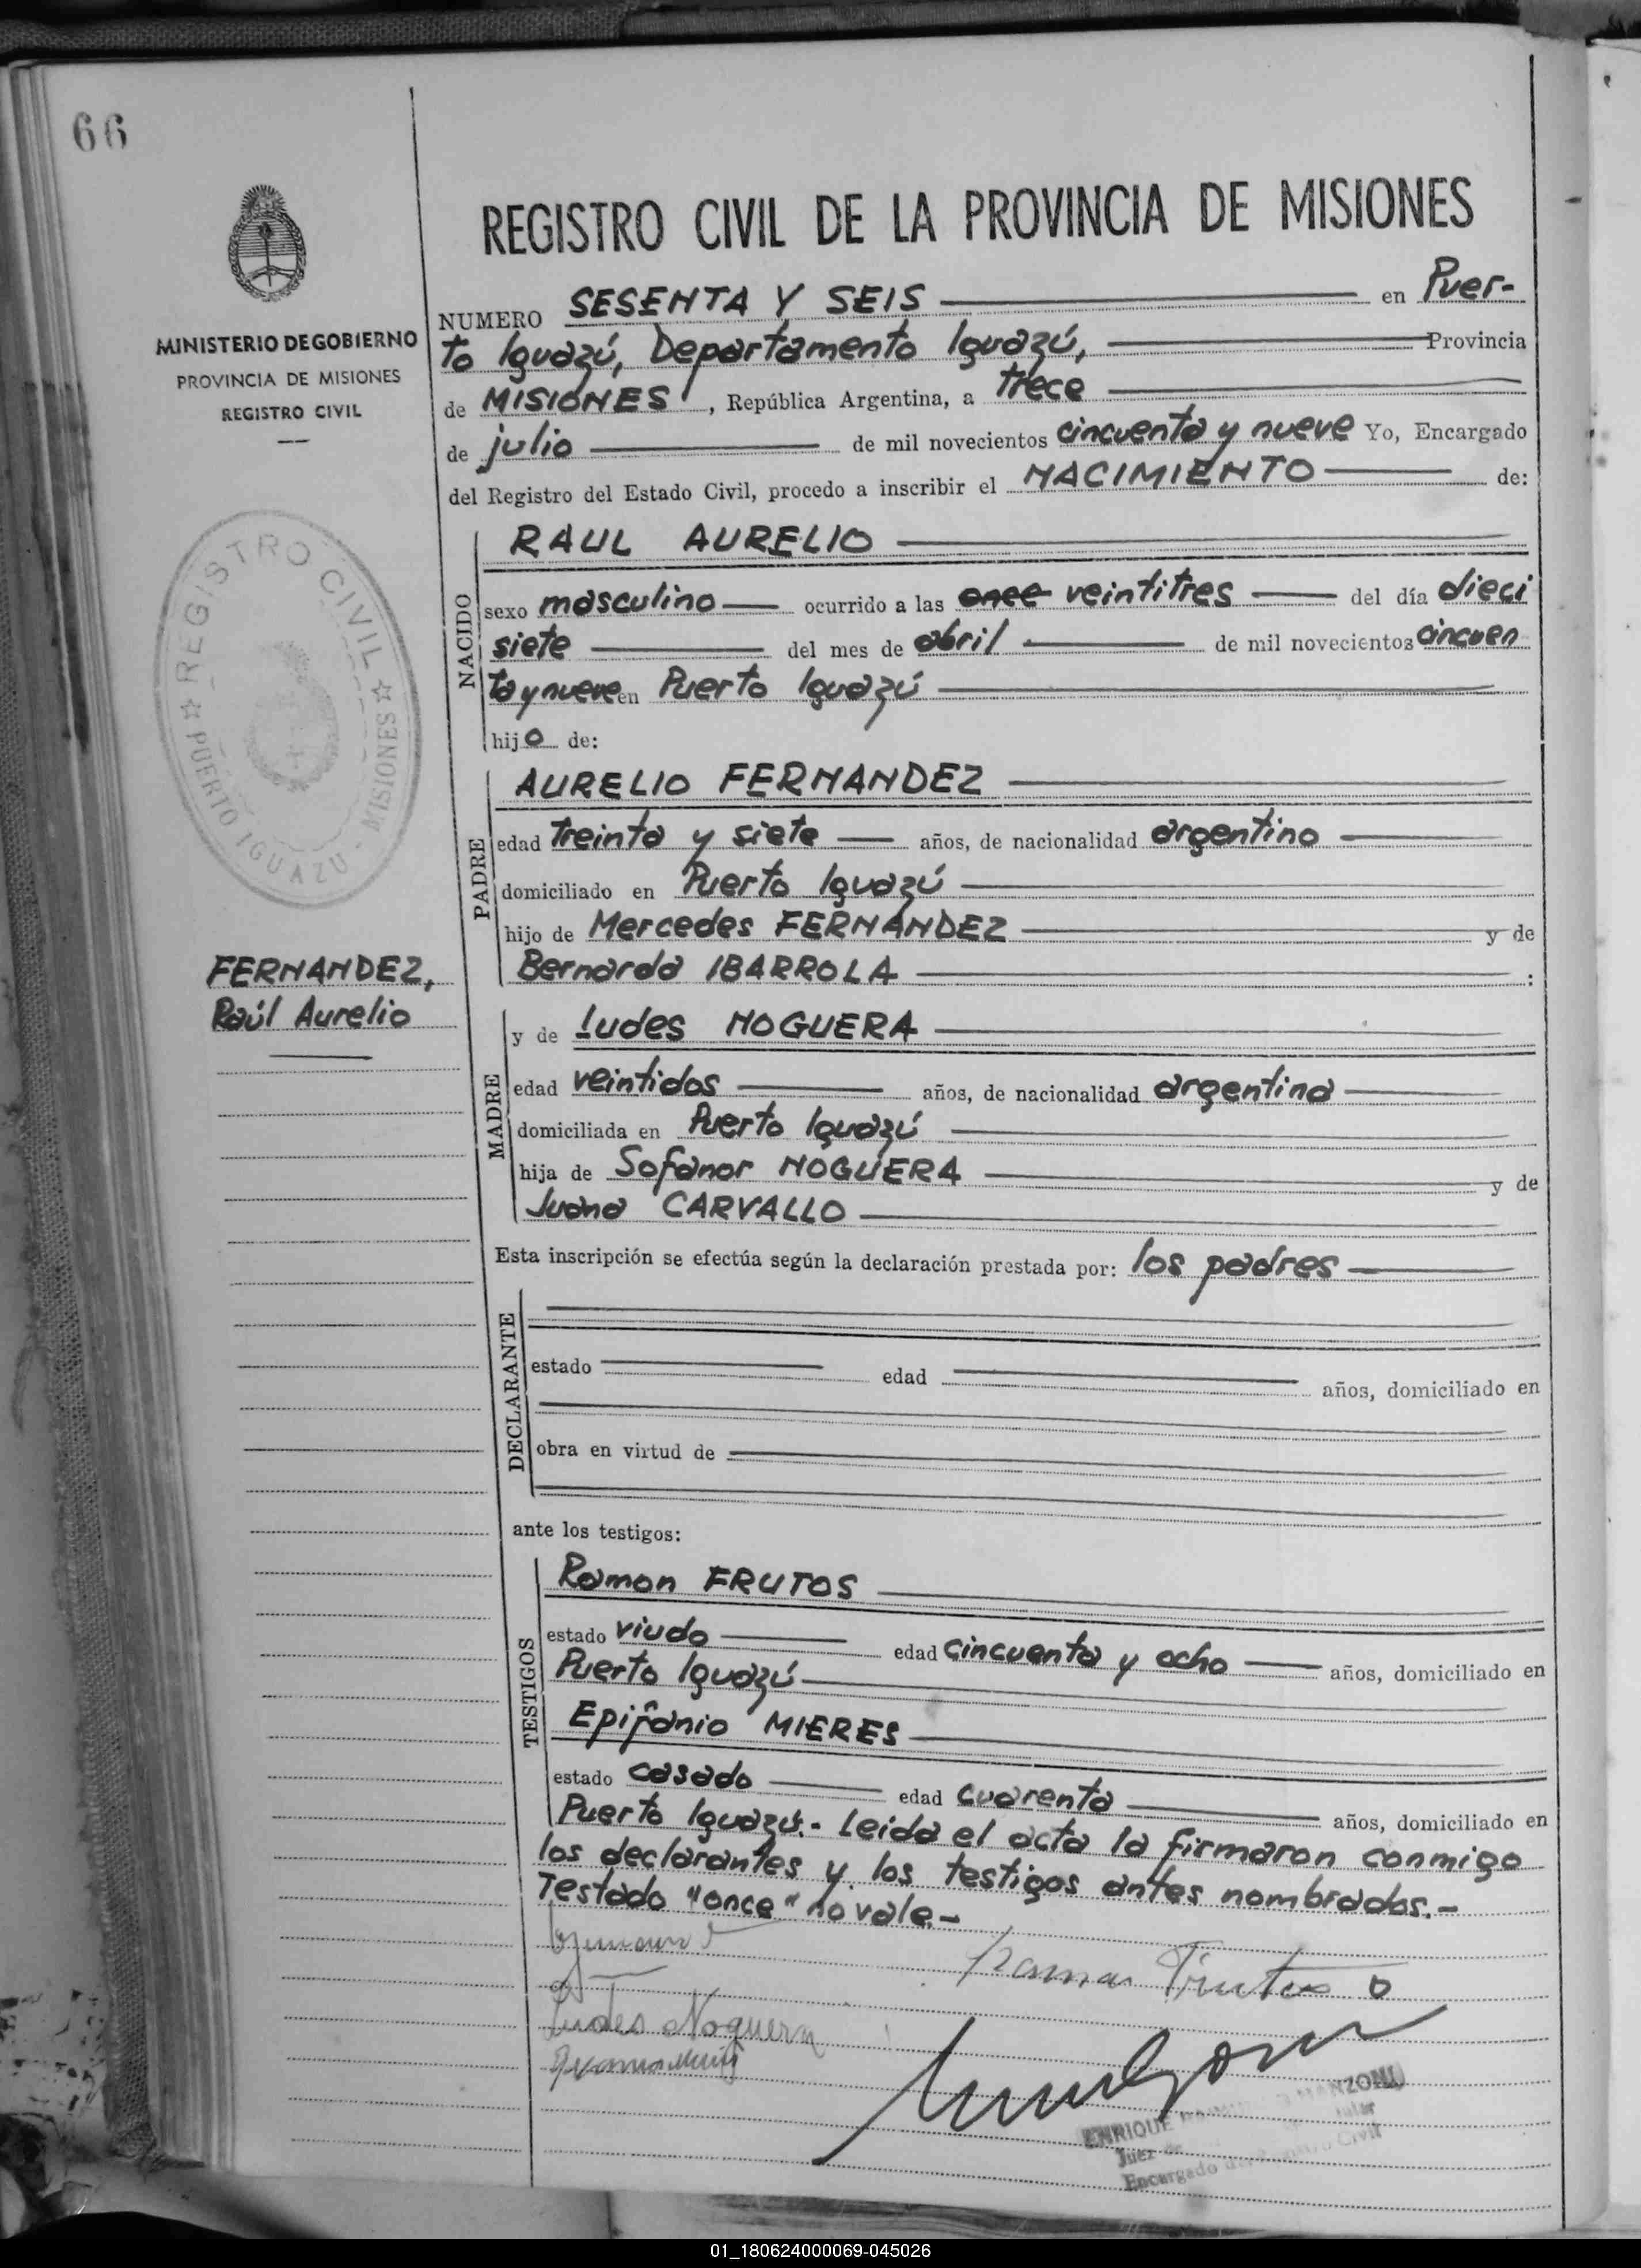 66
MINISTERIO DE GOBIERNO
PROVINCIA DE MISIONES
REGISTRO CIVIL
REGISTRO CIVIL
PUERTO IGUAZU - MISIONES
FERNANDEZ,
Raúl Aurelio
REGISTRO CIVIL DE LA PROVINCIA DE MISIONES
NUMERO SESENTA Y SEIS en Puer-
to Iguazú, Departamento Iguazú, Provincia
de MISIONES, República Argentina, a trece
de julio de mil novecientos cincuenta y nueve Yo, Encargado
del Registro del Estado Civil, procedo a inscribir el NACIMIENTO de:
NACIDO
RAUL AURELIO
sexo masculino ocurrido a las once veintitres del día dieci
siete del mes de abril de mil novecientos cincuen
ta y nueve en Puerto Iguazú
hijo de:
PADRE
AURELIO FERNANDEZ
edad treinta y siete años, de nacionalidad argentino
domiciliado en Puerto Iguazú
hijo de Mercedes FERNANDEZ y de
Bernarda IBARROLA :
MADRE
y de Ludes NOGUERA
edad veintidos años, de nacionalidad argentina
domiciliada en Puerto Iguazú
hija de Sofanor NOGUERA y de
Juana CARVALLO
Esta inscripción se efectúa según la declaración prestada por: los padres
DECLARANTE
estado edad años, domiciliado en
obra en virtud de
ante los testigos:
TESTIGOS
Ramon FRUTOS
estado viudo edad cincuenta y ocho años, domiciliado en
Puerto Iguazú
Epifanio MIERES
estado casado edad cuarenta años, domiciliado en
Puerto Iguazú.- Leida el acta la firmaron conmigo
los declarantes y los testigos antes nombrados.-
Testado "once" no vale.-
Ramon Frutos
Ludes Noguera
ENRIQUE MANZONI
Juez de
Encargado del Registro Civil
01_180624000069-045026